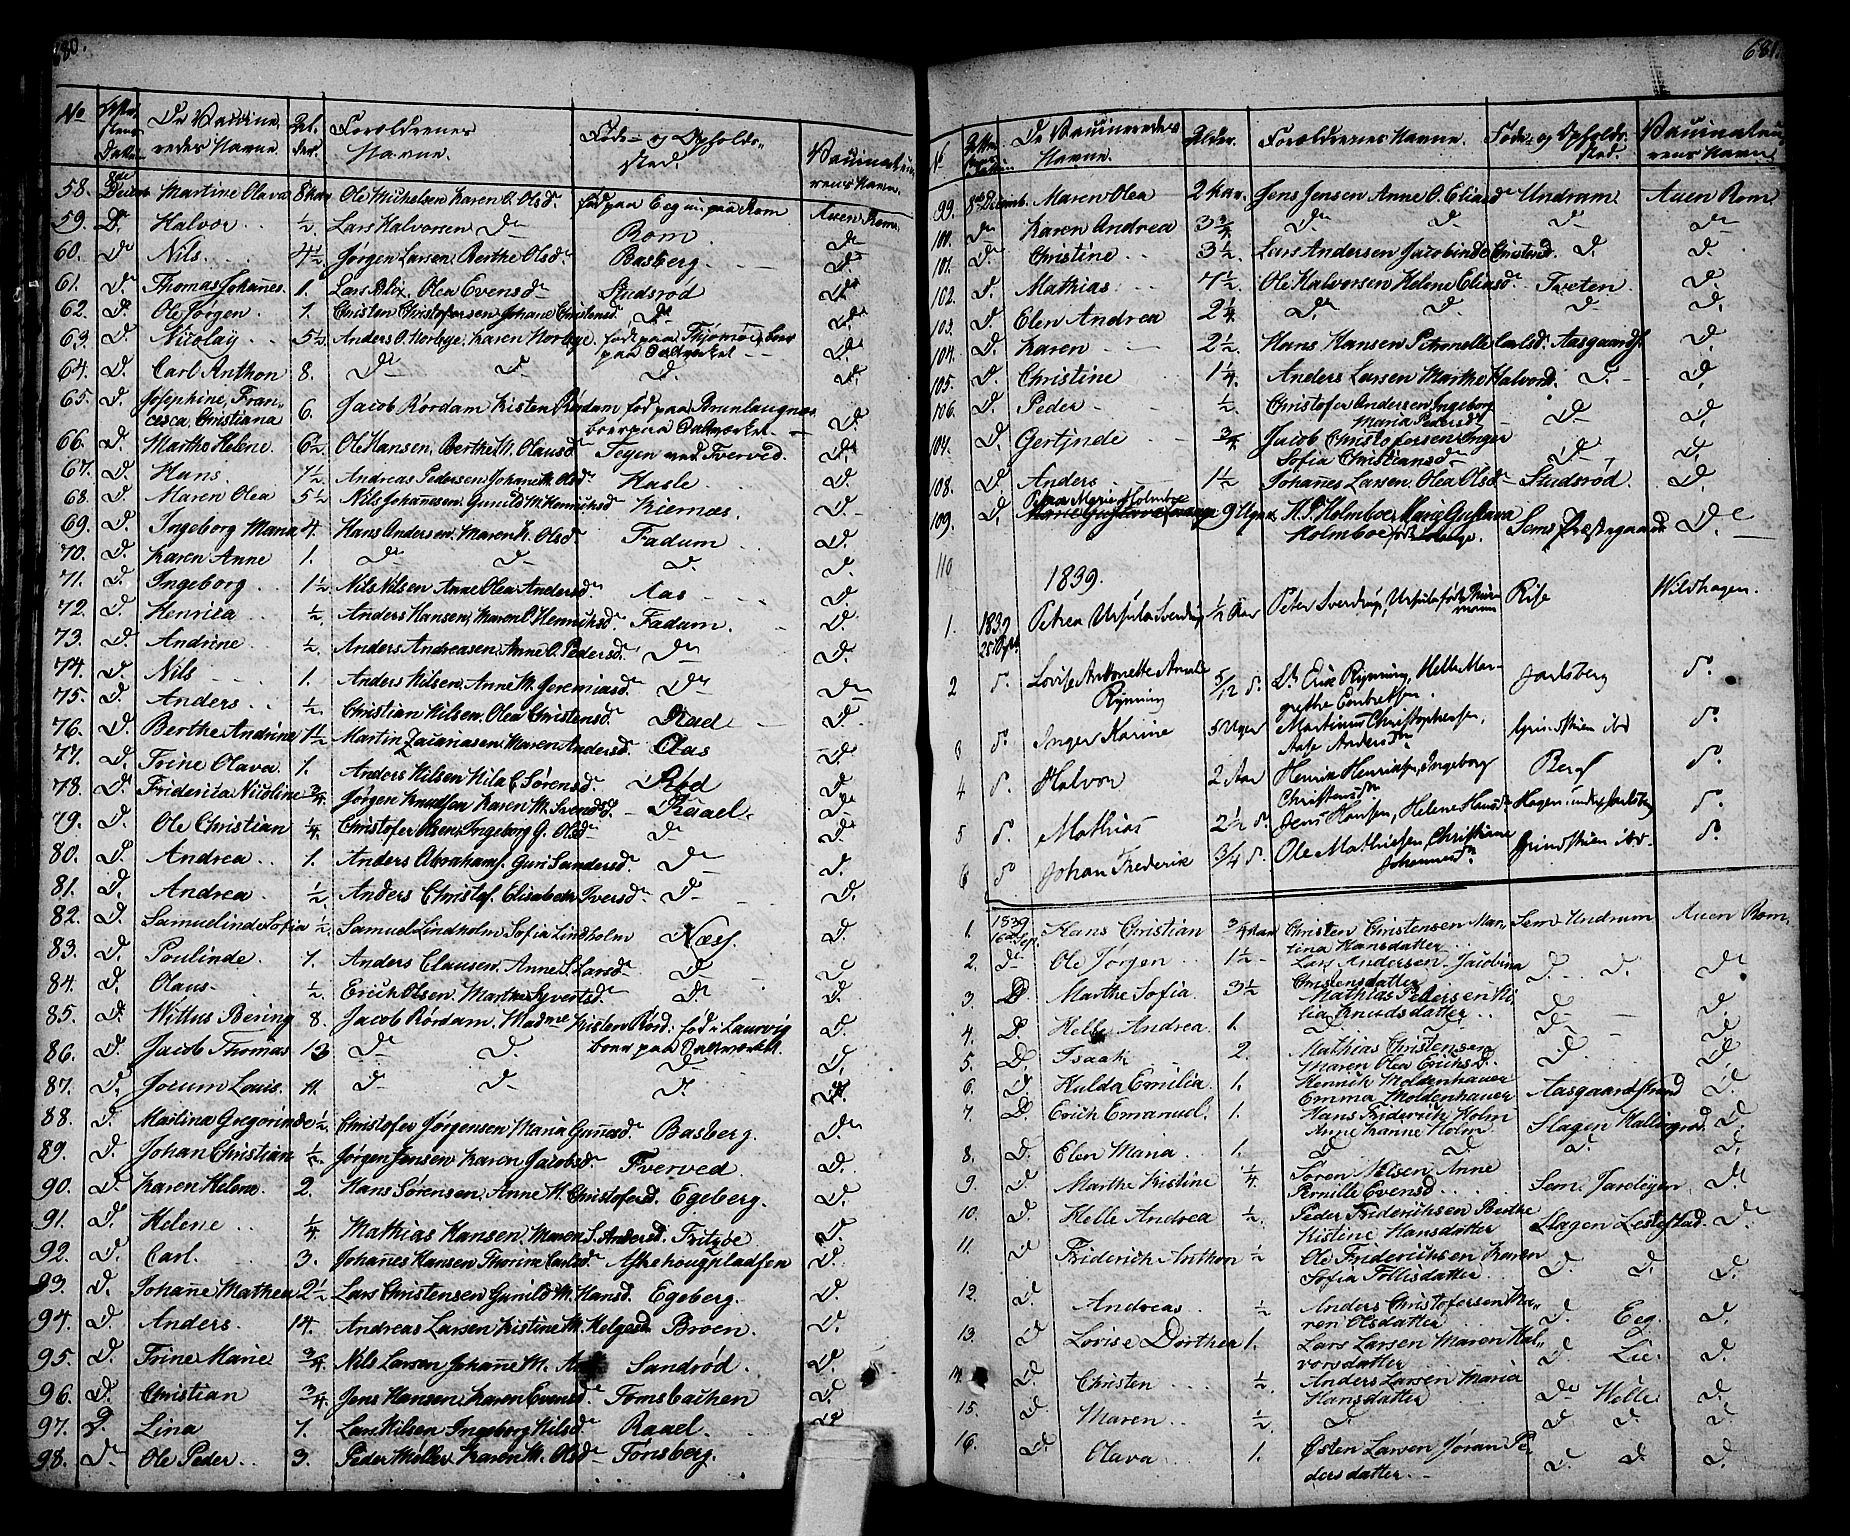 680.
No Attestens Datum De Vaccineredes Navne. Alder. Forældrenes Navne. Føde- og Opholdssted. Vaccinateurens Navn.
58. 8de Decemb Martine Olava 8 Aar Ole Michelsen Karen O. Olsd. født paa Eeg nu paa Rom Auen Rom.
59. D. Halvor ½ Lars Halvorsen Do Rom. Do
60. D Nils 4½ Jørgen Larsen, Berthe Olsdr Basberg. Do
61. D. Thomas Johanes. 1. Lars Blix, Olea Evensd Studsrød D.
62. D. Ole Jørgen 1. Christen Christofersen Johane Christensd D. D.
63. D. Nicolay 5½ Anders O. Norbye, Karen Norbye. født paa Thjømøe, boer
paa Valværket D.
64. D. Carl Anthon 8. D D D. D.
65. D. Josephine, Fran-
cesca, Christiana 6. Jacob Rørdam Kisten Rørdam født paa Brunlaugnæs
boer paa Valværket D.
66. D. Marthe Helene. 6½ Ole Hansen, Berthe M. Olausd Tegen ved Tverved. D.
67. D. Hans 7½ Andreas Pedersen Johane M. Olsd Hasle D.
68. D. Maren Olea 5½ Nils Johanesen, Gunild M. Henrichsd Kiernæs. D.
69. D. Ingeborg Maria 4. Hans Andersen, Maren K. Olsd Fadum D.
70. D. Karen Anne 1. D D D D.
71. D. Ingeborg. 1½ Nils Nilsen Anne Olea Andersd Aas D.
72. D. Henrica ½ Anders Hansen, Karen O. Henrichsd. Fadum. D.
73. D. Andrine ½ Anders Andreasen, Anne O. Pedersd. D D.
74. D. Nils 1. Anders Nilsen, Anne M. Jeremiasd. D D.
75. D. Anders ½ Christian Nilsen. Olea Christensd. Rad D.
76. D. Berthe Andrine 1½ Martin Zacariasen, Maren Andersd. Aas D.
77. D. Trine Olava. 1. Anders Nilsen, Nila E. Sørensd. Rød D.
78. D. Friderica Nicoline ¾ Jørgen Knudsen Karen M. Svendsd. Raael. D.
79. D. Ole Christian ¼ Christofer Olsen, Ingeborg G. Olsd D D.
80. D. Andrea 1. Anders Abrahams. Guri Sandersd. D D.
81. D. Andrea. ½ Anders Christof. Elisabeth Iversd D D.
82. D. Samuelinde Sofia ½ Samuel Lindholm Sofia Lindholm Næss. D.
83. D. Poulinde. 7. Anders Clausen, Anne S. Larsd D D
84. D. Olaus ½ Erich Olsen, Marthe Syvertsd. D D.
85. D. Wittus Bering 8. Jacob Rørdam, Madme Kisten Rørd. fød i Laurvig
boer paa Valværket. D.
86. D. Jacob Thomas 13 D D. D D.
87. D. Jocum Louis. 11. D D D. D.
88. D. Martina Gregorinde ½ Christofer Jørgensen Maria Gunesd. Basberg. D.
89. D. Johan Christian ½ Jørgen Jensen Karen Jacobsd. Tverved D.
90. D. Karen Helena. 2. Hans Sørensen, Anne M. Christofersd. Egeberg. D.
91. D. Helene ¼ Mathias Hansen, Maren S. Andersd. Fritzøe D.
92. D. Carl. 3. Johanes Hansen Thorine Carlsd. Askehougpladsen D.
93. D. Johane Mathea 2½ Lars Christensen Gunild M. Hansd. Egeberg. D.
94. D. Anders. 14. Andreas Larsen Kistine M. Helgesd Broen. D.
95. D. Trine Marie ¾ Nils Larsen Johane M. Sandrød. D.
96. D. Christian ¾ Jens Hansen, Karen Evensd. Tomsbakken D.
97. D. Lina 7. Lars Nilsen Ingeborg Nilsd. Raael. D
98. D Ole Peder 3. Peder Møller Karen M. Olsd Tønsberg.
681.
No Attestens Datum De Vaccineredes Navne. Alder. Forældrenes Navne. Føde- og Opholdssted. Vaccinateurens Navn.
99. 8de Decemb. Maren Olea 2 Aar. Jens Jensen Anne O. Eliasd Undram. Auen Rom
100. D Karen Andrea 3¾ D D D D
101. D. Christine 3½ Lars Andersen Jacobinde Christensd. D D.
102. D. Mathias 7½ Ole Halvorsen Helene Eliasd. Tveten D.
103. D. Elen Andrea 2¼ D. D D D.
104. D. Karen 2½ Hans Hansen Petronelle Carlsd. Aasgaards. D.
105. D. Christine 1¼ Anders Larsen Marthe Halvord. D. D.
106. D. Peder ½ Christofer Andersen Ingeborg
Maria Pedersd D D.
104. D. Gertjnde ¾ Jacob Christofersen Inger
Sofia Christiansd D. D.
108. D Anders 1½ Johanes Larsen, Olea Olsd Studsrød D.
109. D. Petra Marie Holmboe 9 Uger H. P. Holmboe, Marie Gustava
Holmboe Sems Præstegaard D
110
1839.
1. 1839 25 Petrea Ursula Sverdrup ½ Aar Peter Sverdrup, Ursula født Rise Wildhagen.
2 do. Lovise Antonette Amalie
Rynning 5/12 do. Lt. Eric Rynning, Helle Mar-
grethe Jarlsberg do.
3 do. Inger Karine 5 Uger Martinus Christophersen,
Aase Andersdr Grindstien ibd do.
4 do. Halvor 2 Aar Henrik Henriksen, Ingeborg
Christensdr Berg do.
5 do. Mathias 2½ do. Jens Hansen, Helene Hansd. Hagen under Jarlsberg do.
6 do Johan Frederik ¾ do. Ole Mathiesen, Christiane
Johannesdr Grindstien ibd. do.
1. 1839 16de Sep. Hans Christian ¾ Aar Christen Christensen Mar-
tina Hansdatter Sem Undrum Auen Rom.
2. D Ole Jørgen 1½ Lars Andersen Jacobina
Christensdatter D D. D
3. D Marthe Sofia. 3½ Mathias Pedersen
Knudsdatter D D.
4. D. Helle Andrea 1. D D D D.
5. D. Isaak 2. Mathias Christensen
Maren Olea Erichsd. D D.
6. D. Hulda Emilia. 1. Henrik Moldenhauer
Emma Moldenhauer Aasgaardstrand D.
7. D. Erich Emanuel. 1. Hans Friderich Holm
Anne Karine Holm Slagen D.
8. D. Elen Maria 1. D D D. D.
9. D Marthe Kistine ¼ Søren Nilsen Anne
Pernille Evensd. Sem. D.
10. D. Helle Andrea ½ Peder Friderichsen Berthe
Kistine Hansdatter Slagen D.
11. D Friderich Anthon ½ Ole Friderichsen Karen
Sofia Follisdatter D D. D.
12. D. Andreas ½ Anders Christofersen Ma-
ren Olsdatter D. Eeg. D.
13. D. Lovise Dorthea 1. Lars Larsen Maren Hal-
vorsdatter D Lie. D.
14. D. Christen ½ Anders Larsen Maria
Hansdatter D Helle. D.
15. D Maren ½ D D D D.
16. D. Olava 1. Østen Larsen Jøran Pe-
dersdatter D D D.